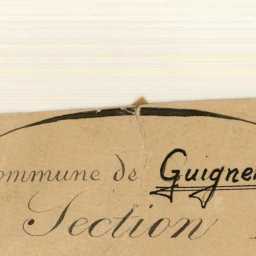 ommune de Guigne
Section